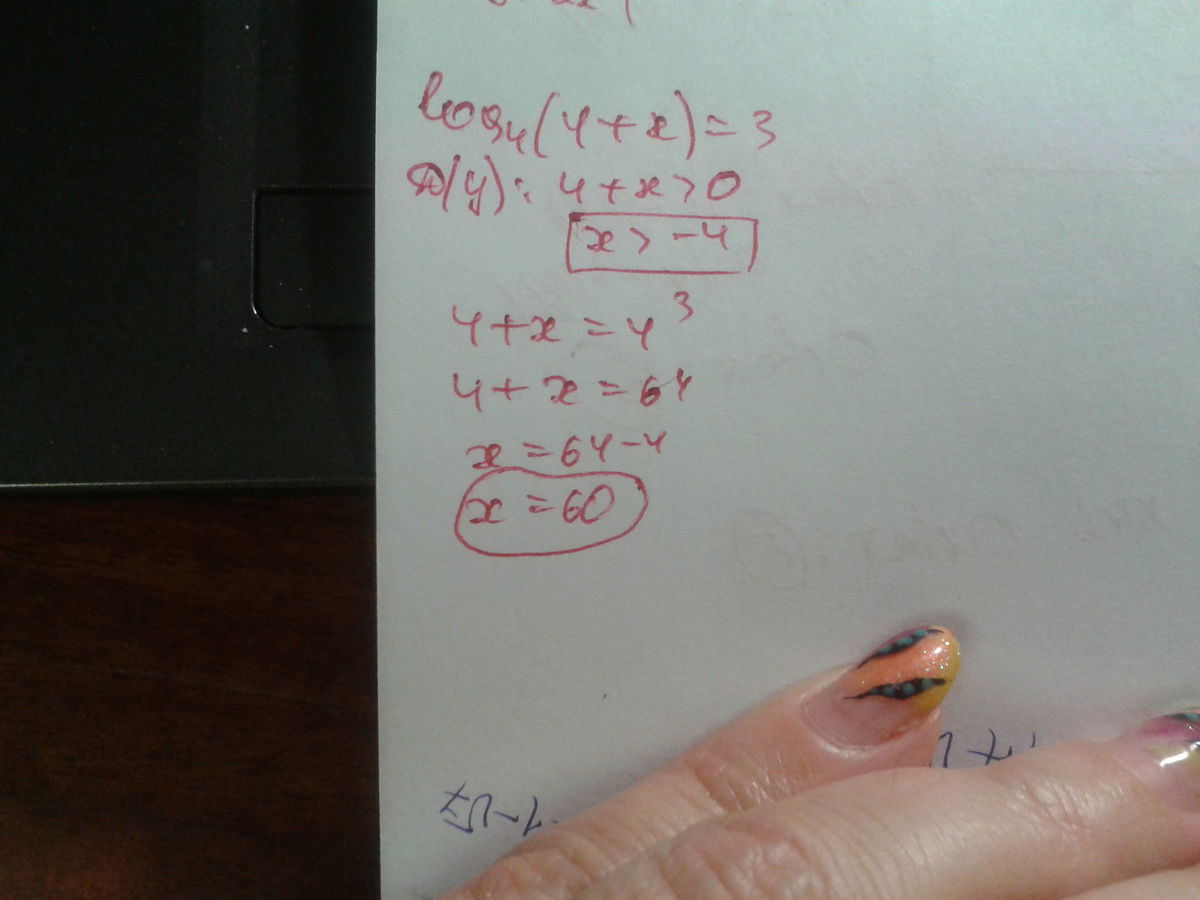 log₄(4+x)=3
D(y): 4+x>0
x > -4
4+x=4³
4+x=64
x=64-4
x=60